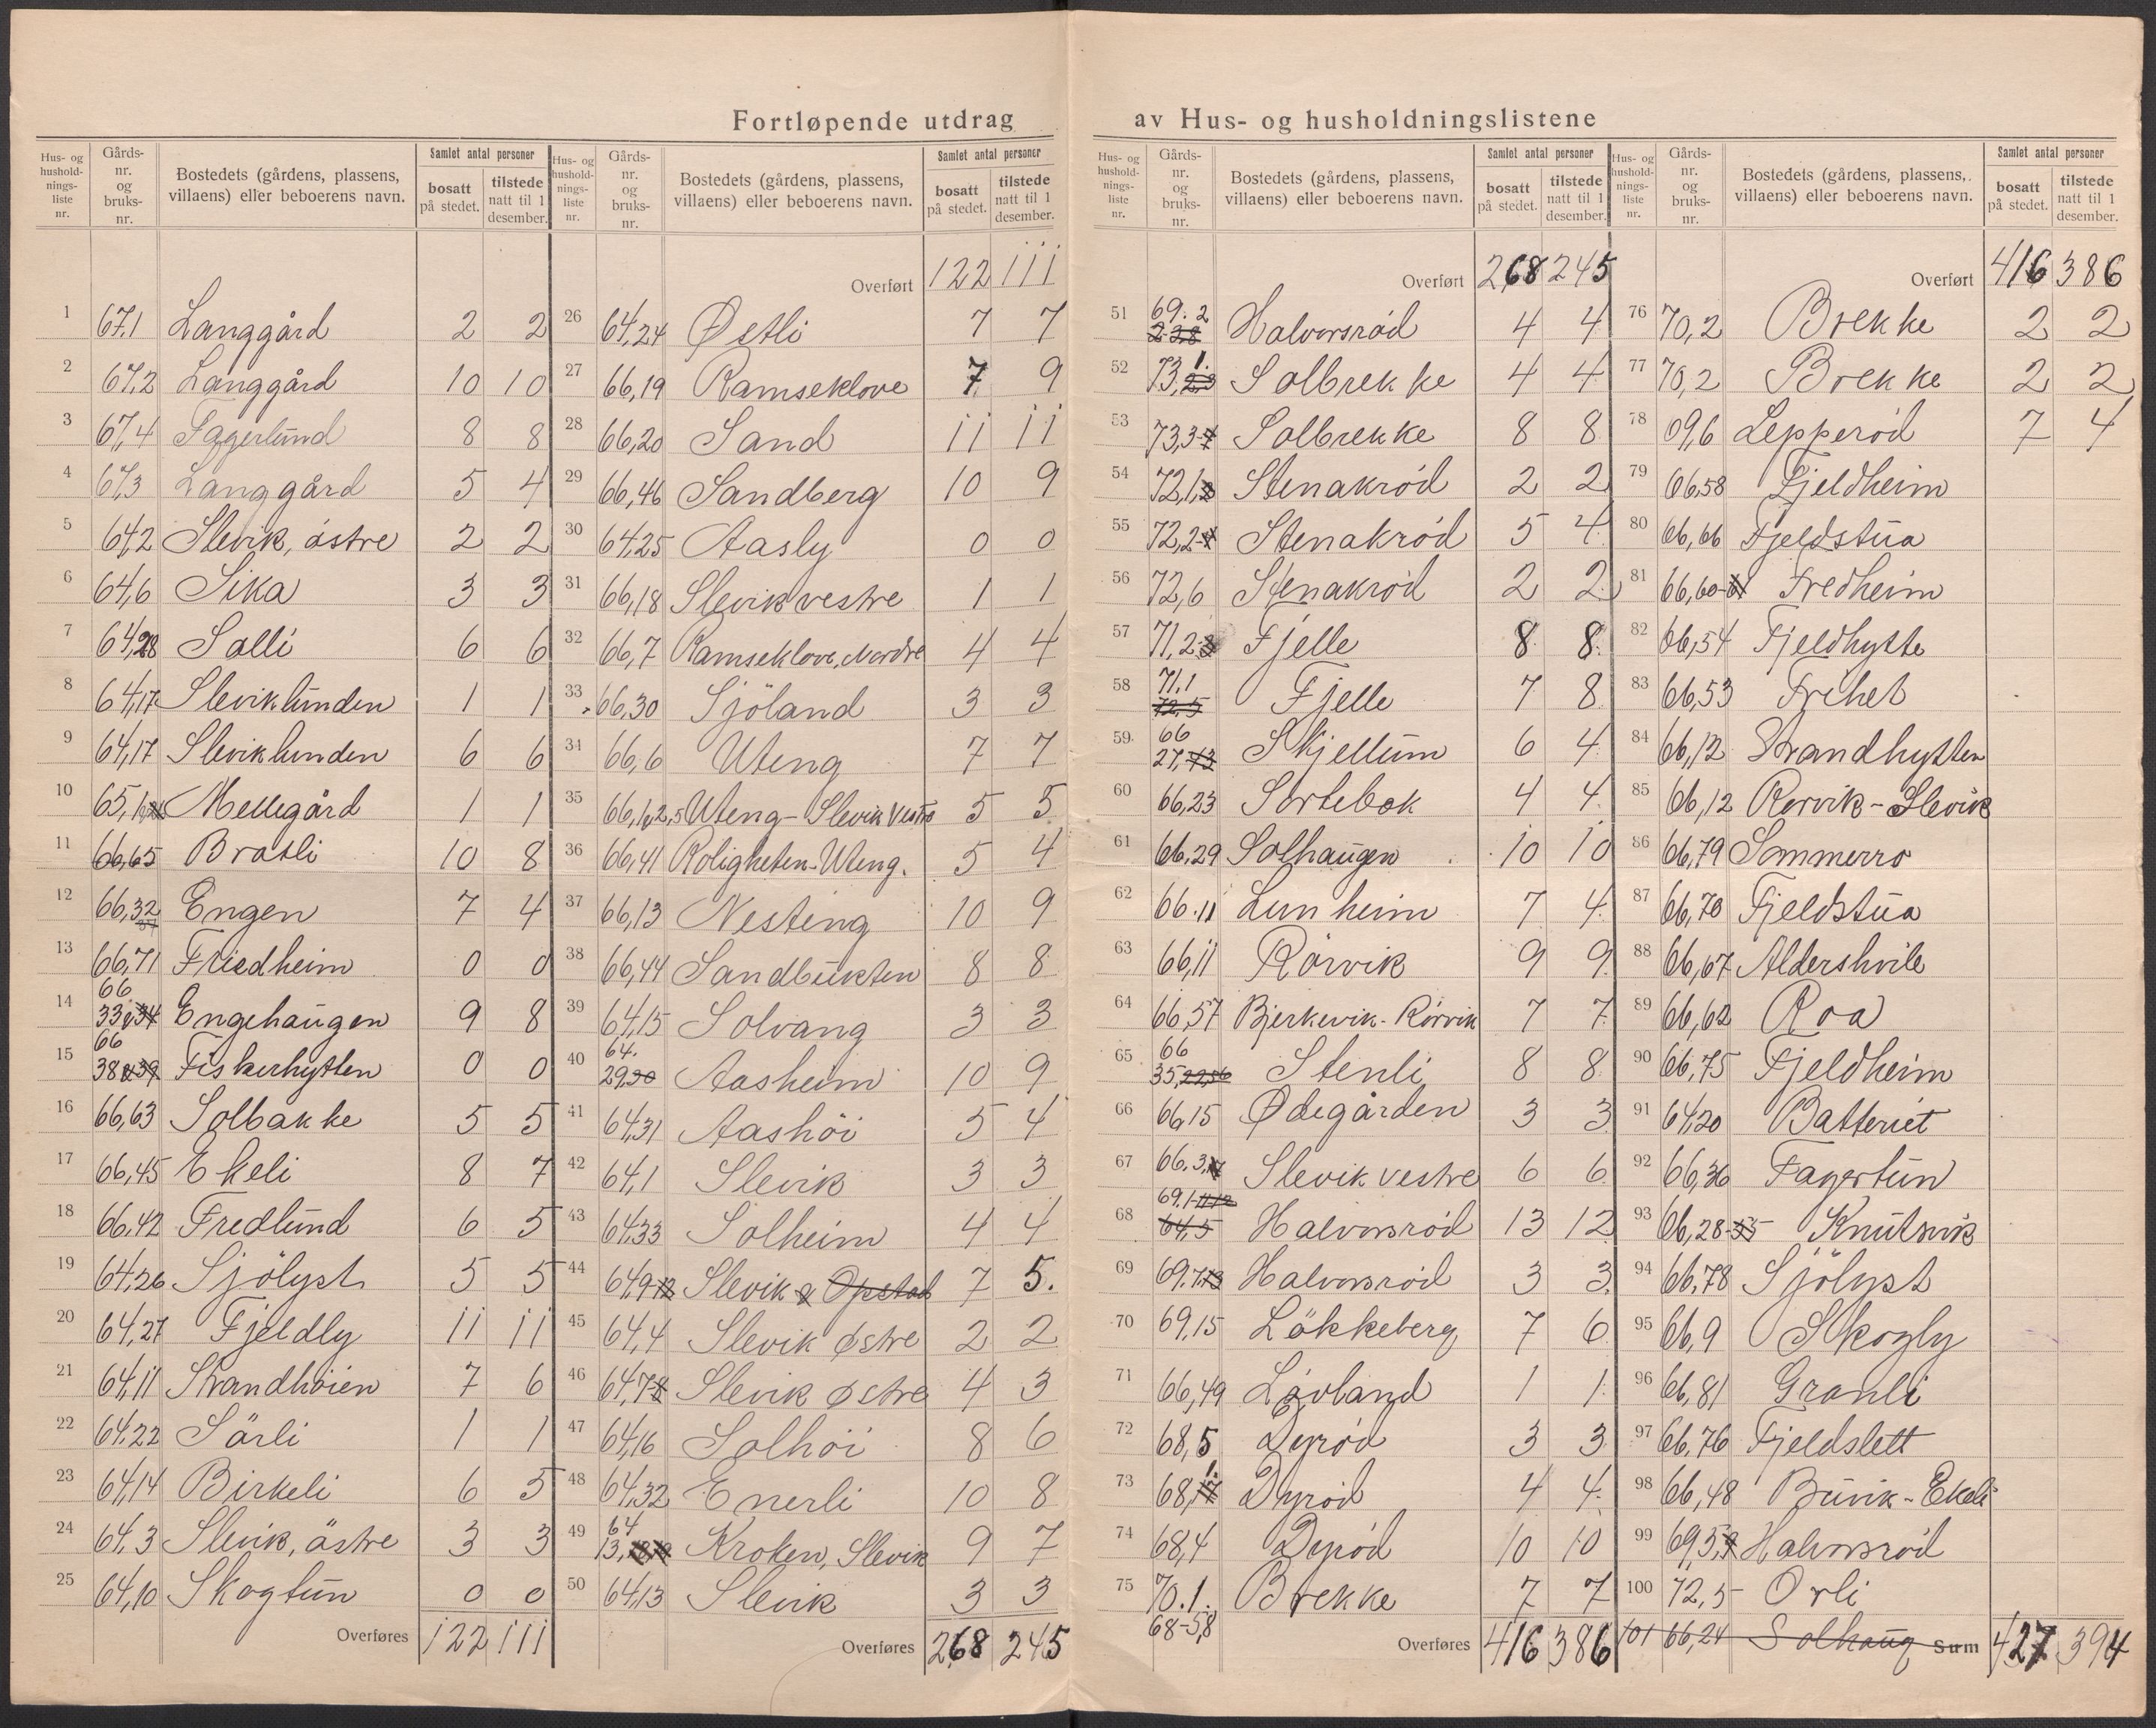 Fortløpende utdrag av Hus- og husholdningslistene
Hus- og husholdnings- liste nr. | Gårds- nr. og bruks- nr. | Bostedets (gårdens, plassens, villaens) eller beboerens navn. | Samlet antal personer | bosatt på stedet. | tilstede natt til 1 desember.
1 67,1 Langgård 2 2
2 67,2 Langgård 10 10
3 67,4 Fagerlund 8 8
4 67,3 Langgård 5 4
5 64,2 Slevik, östre 2 2
6 64,6 Sika 3 3
7 64,28 Salli 6 6
8 64,17 Sleviklunden 1 1
9 64,17 Sleviklunden 6 6
10 65,1 Mellegård 1 1
11 66,65 Bratli 10 8
12 66,32 Engen 7 4
13 66,71 Friedheim 0 0
14 66 33&34 Engehaugen 9 8
15 66 38&39 Fiskerhytten 0 0
16 66,63 Solbakke 5 5
17 66,45 Ekeli 8 7
18 66,42 Fredlund 6 5
19 64,26 Sjölyst 5 5
20 64,27 Fjeldly 11 11
21 64,11 Strandhöien 7 6
22 64,22 Särli 1 1
23 64,14 Birkeli 6 5
24 64,3 Slevik, östre 3 3
25 64,10 Skogtun 0 0
Overføres 122 111
Hus- og husholdnings- liste nr. | Gårds- nr. og bruks- nr. | Bostedets (gårdens, plassens, villaens) eller beboerens navn. | Samlet antal personer | bosatt på stedet. | tilstede natt til 1 desember.
Overført 122 111
26 64,24 Østli 7 7
27 66,19 Ramseklove 7 9
28 66,20 Sand 11 11
29 66,46 Sandberg 10 9
30 64,25 Aasly 0 0
31 66,18 Slevik vestre 1 1
32 66,7 Ramseklove, Nordre 4 4
33 66,30 Sjöland 3 3
34 66,6 Uteng 7 7
35 66,1,2,5 Uteng - Slevik Vestre 5 5
36 66,41 Roligheten - Uteng. 5 4
37 66,13 Nesteng 10 9
38 66,44 Sandbukten 8 8
39 64,15 Solvang 3 3
40 64. 29,30 Aasheim 10 9
41 64,31 Aashöi 5 4
42 64,1 Slevik 3 3
43 64,33 Solheim 4 4
44 64,9-12 Slevik & Opstad 7 5.
45 64,4 Slevik østre 2 2
46 64,7-8 Slevik østre 4 3
47 64,16 Solhöi 8 6
48 64,32 Enerli 10 8
49 64 13, Kroken, Slevik 9 7
50 64,13 Slevik 3 3
Overføres 268 245
Hus- og husholdnings- liste nr. | Gårds- nr. og bruks- nr. | Bostedets (gårdens, plassens, villaens) eller beboerens navn. | Samlet antal personer | bosatt på stedet. | tilstede natt til 1 desember.
Overført 268 245
51 69.2 2-3,8 Halvorsröd 4 4
52 73,1. Solbrekke 4 4
53 73,3-7 Solbrekke 8 8
54 72,1, Stenakröd 2 2
55 72,2-4 Stenakröd 5 4
56 72,6 Stenakröd 2 2
57 71,2-8 Fjelle 8 8
58 71.1 72,5 Fjelle 7 8
59 66 27,43 Skjellum 6 4
60 66,23 Sortebek 4 4
61 66,29 Solhaugen 10 10
62 66.11 Lunheim 7 4
63 66,11 Rörvik 9 9
64 66,57 Bjerkevik - Rörvik 7 7
65 66 35,22,56 Stenli 8 8
66 66,15 Ødegården 3 3
67 66.3, Slevik vestre 6 6
68 69.1-11-12 64,5 Halvorsröd 13 12
69 69.7,13 Halvorsröd 3 3
70 69,15 Lökkeberg 7 6
71 66,49 Lövland 1 1
72 68,5 Dyröd 3 3
73 68,1. Dyröd 4 4
74 68,4 Dyröd 10 10
75 70.1. 68-5,8 Brekke 7 7
Overføres 416 386
Hus- og husholdnings- liste nr. | Gårds- nr. og bruks- nr. | Bostedets (gårdens, plassens, villaens) eller beboerens navn. | Samlet antal personer | bosatt på stedet. | tilstede natt til 1 desember.
Overført 416 386
76 70,2 Brekke 2 2
77 70,2 Brekke 2 2
78 69,6 Lepperöd 7 4
79 66,58 Fjeldheim
80 66,66 Fjeldstua
81 66,60-61 Fredheim
82 66,54 Fjeldhytte
83 66,53 Frehet
84 66,12 Strandhytten
85 66,12 Rorvik - Slevik
86 66,79 Sommerro
87 66,70 Fjeldstua
88 66,67 Aldershvile
89 66,62 Roa
90 66,75 Fjeldheim
91 64,20 Batteriet
92 66,36 Fagertun
93 66,28-55 Knutsvik
94 66,78 Sjölyst
95 66,9 Skogly
96 66,81 Granli
97 66,76 Fjeldslett
98 66,48 Buvik - Ekeli
99 69,5,9 Halvorsröd
100 72,5 Orli
101 66,24 Solhaug
Sum 427 394